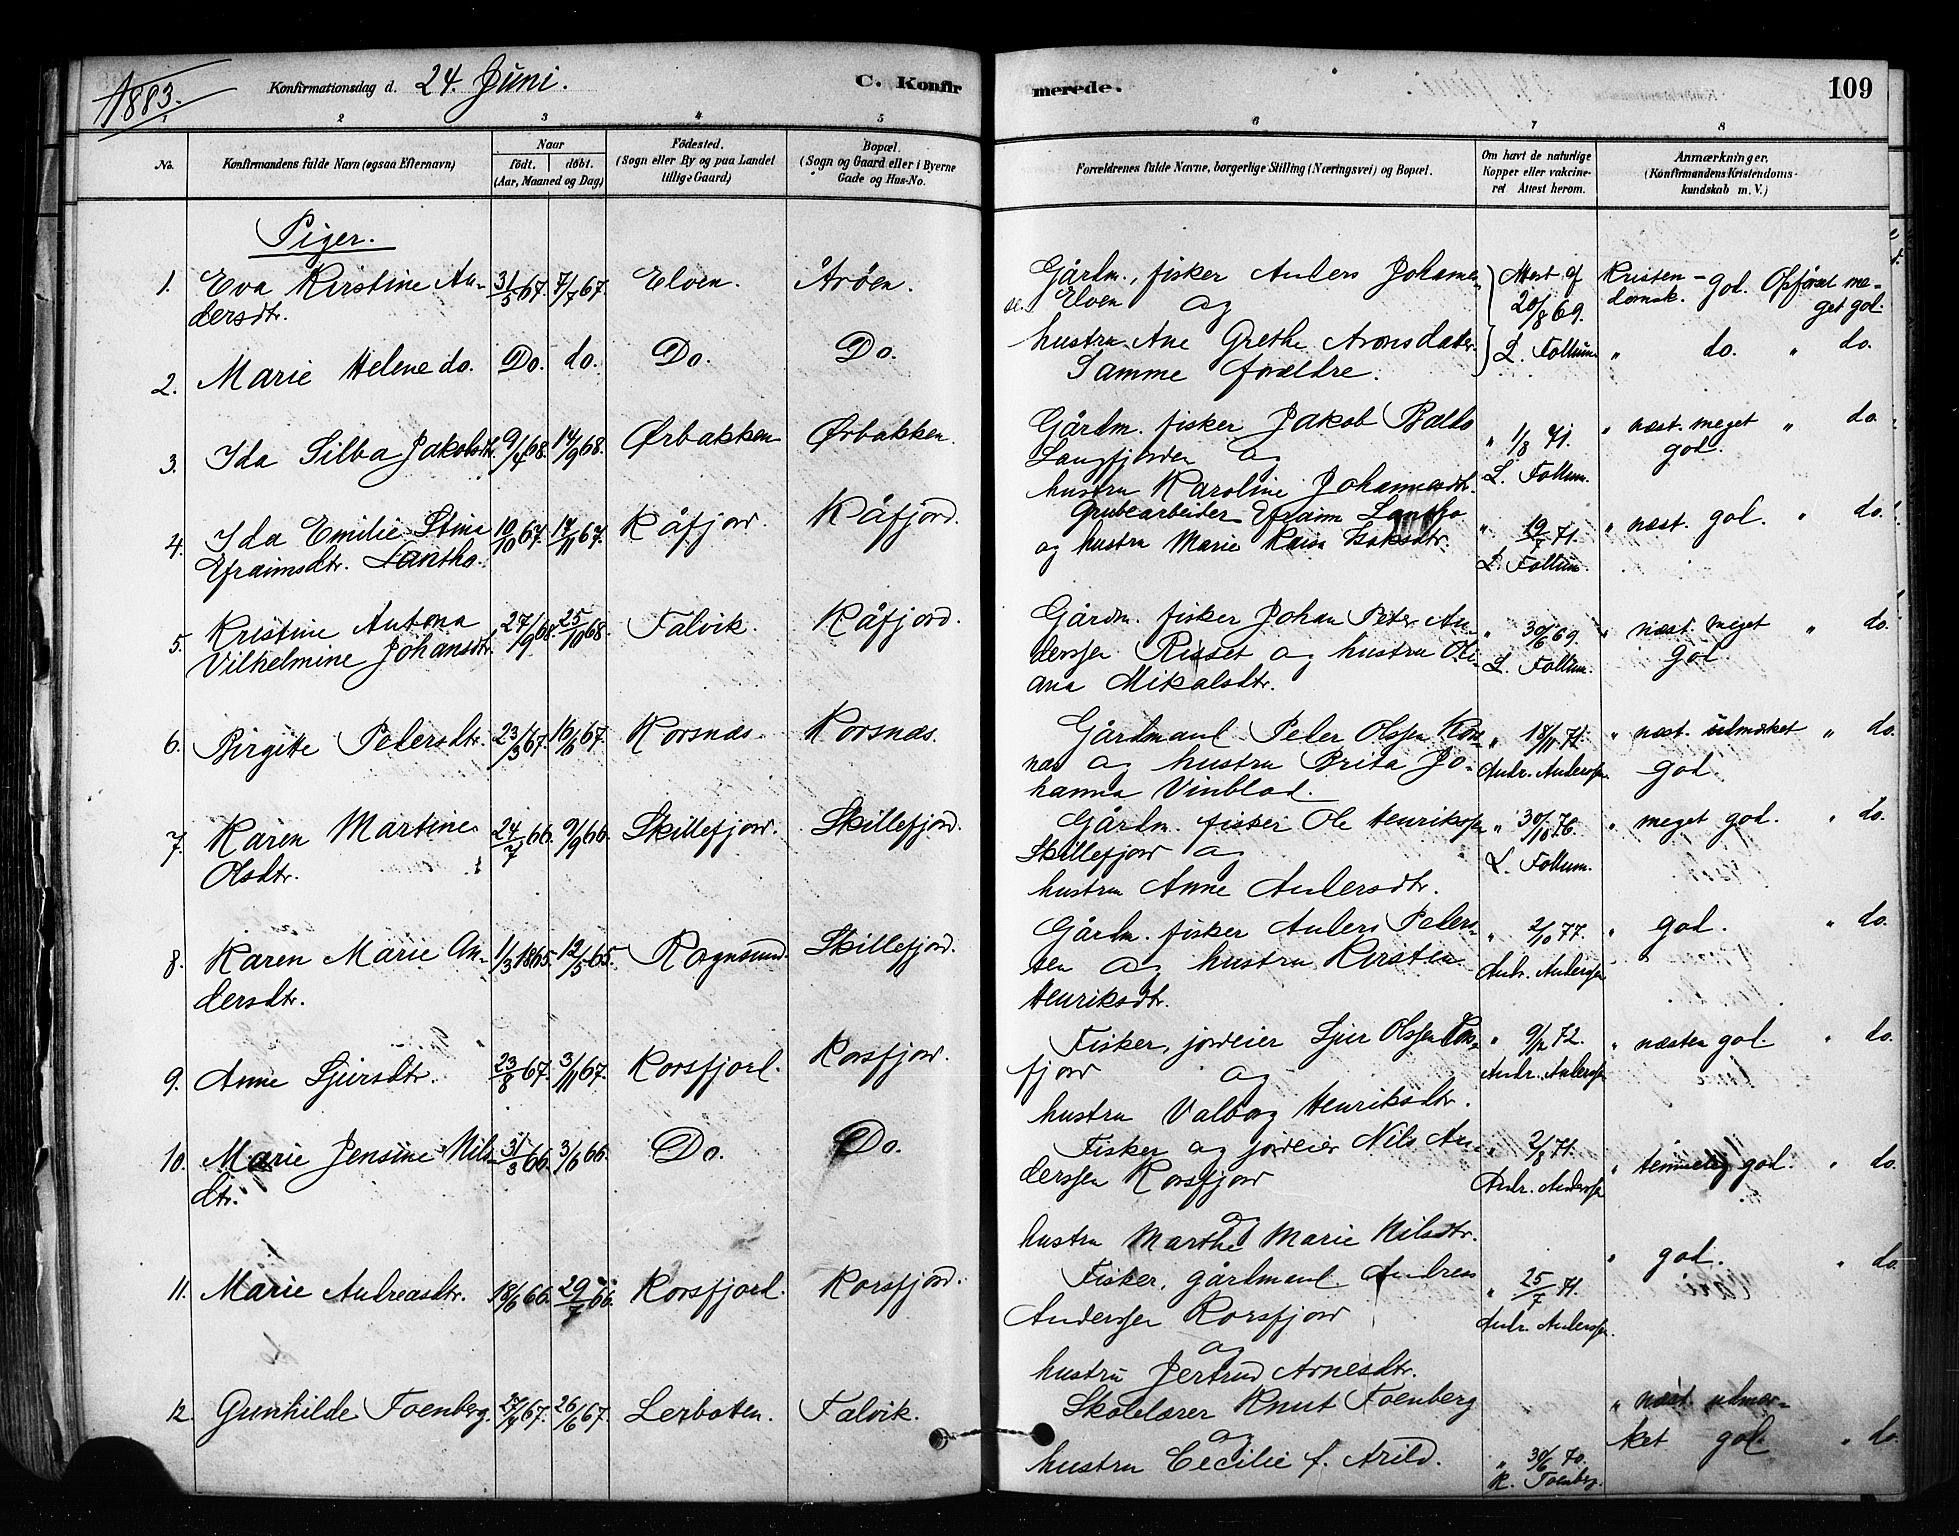 1883.
Konfirmationsdag d. 24. Juni.
C. Konfir
merede.
109
1 2 3 4 5 6 7 8
No.
Konfirmandens fulde Navn (ogsaa Efternavn)
Naar
födt. döbt.
(Aar, Maaned og Dag)
Födested.
(Sogn eller By og paa Landet
tillige Gaard)
Bopæl.
(Sogn og Gaard eller i Byerne
Gade og Hus-No.
Forældrenes fulde Navne, borgerlige Stilling (Næringsvei) og Bopæl.
Om havt de naturlige
Kopper eller vakcine-
ret Attest herom.
Anmærkninger.
(Konfirmandens Kristendoms-
kundskab m. V.)
Piger.
1. Eva Kirstine An- 31/5 67. 7/7 67. Elven. Årøen.
dersdtr.
Gårdm., fisker Anders Johannes-
sen Elven og
hustru Ane Grethe Aronsdater.
Attest af
20/8 69.
L. Follum.
Kristen- god. Opførsel me-
domsk. get god.
2. Marie Helene do. Do. do. Do. Do.
Samme forældre.
" do. " do.
3. Ida Silba Jakobsdtr. 9/4 68. 14/9 68. Ørbakken Ørbakken.
Gårdm. fisker Jakob Balto
Langfjorden og
hustru Karoline Johannesdtr.
" 1/8 71.
L. Follum.
" næst. meget " do.
god.
4. Ida Emilie Stina 10/10 67. 17/11 67. Kåfjord. Kåfjord.
Efraimsdtr. Lantho.
Grubearbeider Efraim Lantho
og hustru Marie Kaisa Isaksdtr.
" 19/7 71.
L. Follum.
" næst. god. " do.
5. Kristine Antona 27/9 68. 25/10 68. Talvik. Kåfjord.
Vilhelmine Johansdtr.
Gårdm. fisker Johan Peter An-
derssen Risset og hustru Oli-
ana Mikalsdtr.
" 30/6 69.
L. Follum.
" næst. meget " do.
god
6. Birgitte Pedersdtr. 23/3 67. 16/6 67. Korsnæs. Korsnæs.
Gårdmand Peder Olssen Kors-
næs og hustru Brita Jo-
hanna Vinblad.
" 18/11 71.
Andr. Anderssen.
" næst. udmærket " do.
god
7. Karen Martine 24/7 66. 9/9 66. Skillefjord. Skillefjord.
Olsdtr.
Gårdm. fisker Ole Henrikssen
Skillefjord og
hustru Anne Andersdtr.
" 30/10 76.
L. Follum.
" meget god. " do.
8. Karen Marie An- 1/3 1865. 12/5 65. Rognsund. Skillefjord.
dersdtr.
Gårdm. fisker Anders Peders-
sen og hustru Kirsten
Henriksdtr.
" 2/10 77.
Andr. Anderssen
" god. " do.
9. Anne Sjursdtr. 23/8 67. 3/11 67. Korsfjord. Korsfjord.
Fisker, jordeier Sjur Olssen Kors-
fjord og
hustru Valborg Henriksdtr.
" 9/2 72.
Andr. Anderssen
" næsten god. " do.
10. Marie Jensine Nils- 31/3 66. 3/6 66. Do. Do.
dtr.
Fisker og jordeier Nils An-
derssen Korsfjord
og
hustru Marthe Marie Nilsdtr.
" 2/8 71.
Andr. Anderssen
" temmelig god. " do.
11. Marie Andreasdtr. 18/6 66. 29/7 66. Korsfjord. Korsfjord.
Fisker, gårdmand Andreas
Anderssen Korsfjord
og
hustru Jertrud Arnesdtr.
" 25/7 71.
Andr. Anderssen.
" god. " do.
12. Gunhilde Foenberg. 27/4 67. 26/6 67. Lerbotten. Talvik.
Skolelærer Knut Foenberg
og
hustru Cecilie f. Arild.
" 30/6 70.
K. Foenberg.
" næst. udmær-
ket god " do.